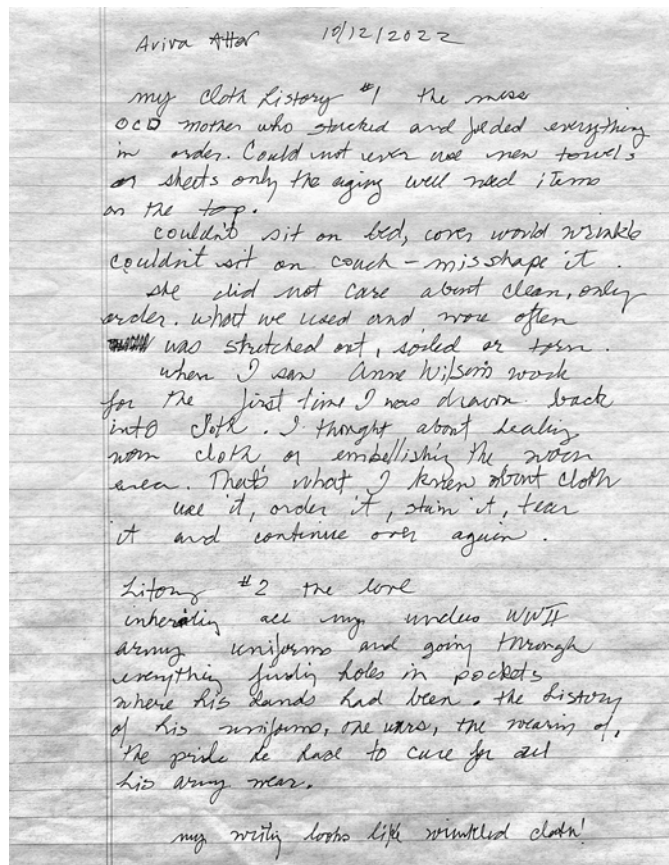 Aviva Alter 10/12/2022
my cloth history #1 the mess
OCD mother who stacked and folded everything
in order. Could not ever use new towels
or sheets only the aging well used items
on the top.
couldn't sit on bed, cover would wrinkle
couldn't sit on couch - misshape it.
she did not care about clean, only
order. what we used and wore often
was stretched out, soiled or torn.
when I saw Anne Wilson's work
for the first time I was drawn back
into cloth. I thought about healing
worn cloth or embellishing the worn
area. That's what I knew about cloth
use it, order it, stain it, tear
it and continue over again.
History #2 the love
inheriting all my uncles WWII
army uniforms and going through
everything finding holes in pockets
where his hands had been. the history
of his uniforms, the wearing of,
the pride he had to care for all
his army wear.
my writing looks like wrinkled cloth!